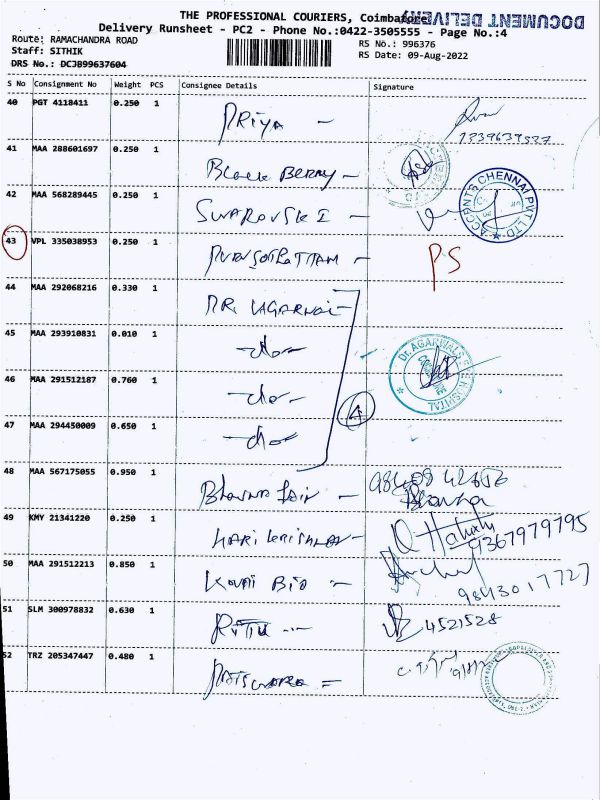 THE PROFESSIONAL COURIERS, Coimbatore
DOCUMENT DELIVERY
Delivery Runsheet - PC2 - Phone No.:0422-3505555 - Page No.:4
Route: RAMACHANDRA ROAD
RS No.: 996376
Staff: SITHIK
RS Date: 09-Aug-2022
DRS No.: DCJB99637604
S No Consignment No Weight PCS Consignee Details Signature
40 PGT 4118411 0.250 1 PRIYA
41 MAA 288601697 0.250 1 Black Berry
42 MAA 568289445 0.250 1 SWAROVSKI
ACCENTS CHENNAI PVT LTD
43 VPL 335038953 0.250 1 PURUSOTHATTAM PS
44 MAA 292068216 0.330 1 DR. AGARWAL
45 MAA 293910831 0.010 1 -do-
Dr. AGARWALS EYE HOSPITAL
46 MAA 291512187 0.760 1 -do-
4
47 MAA 294450009 0.650 1 -do-
48 MAA 567175055 0.950 1 Bhavna Jain
Bhavna
49 KMY 21341220 0.250 1 HARI KRISHNAN
9367979795
50 MAA 291512213 0.850 1 KOVAI BIO
9843017727
51 SLM 300978832 0.630 1 RITU 4521528
52 TRZ 205347447 0.480 1